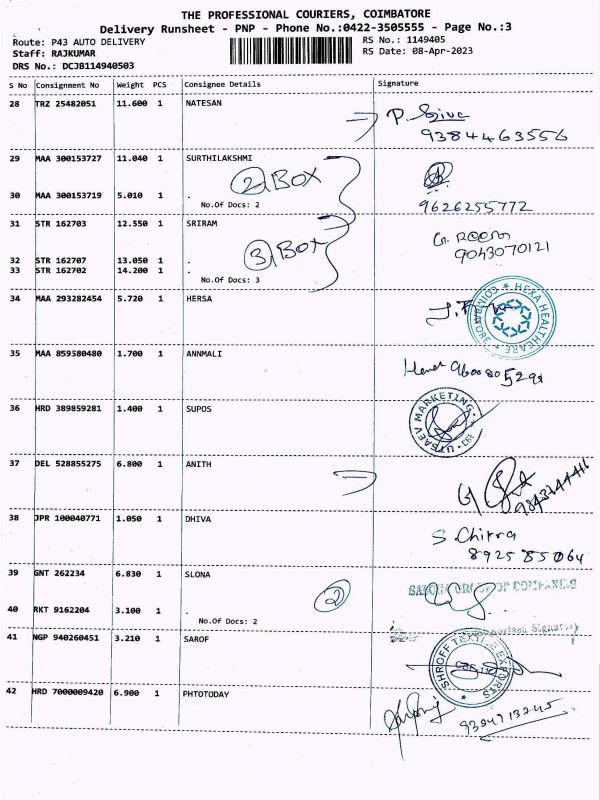 THE PROFESSIONAL COURIERS, COIMBATORE
Delivery Runsheet - PNP - Phone No.:0422-3505555 - Page No.:3
Route: P43 AUTO DELIVERY
RS No.: 1149405
Staff: RAJKUMAR
RS Date: 08-Apr-2023
DRS No.: DCJB114940503
S No Consignment No Weight PCS Consignee Details Signature
28 TRZ 25482051 11.600 1 NATESAN
P. Siva
9384463556
29 MAA 300153727 11.040 1 SURTHILAKSHMI
2 BOX
30 MAA 300153719 5.010 1 .
No.Of Docs: 2
9626255772
31 STR 162703 12.550 1 SRIRAM
3 BOX
9043070121
32 STR 162707 13.050 1 .
33 STR 162702 14.200 1 .
No.Of Docs: 3
34 MAA 293282454 5.720 1 HERSA
HEXA HEALTHCARE * COIMBATORE *
35 MAA 859580480 1.700 1 ANNMALI
36 HRD 389859281 1.400 1 SUPOS
UTSAEV MARKETING * CBE *
37 DEL 528855275 6.800 1 ANITH
38 JPR 100040771 1.050 1 DHIVA
S. Chitra
89258 85064
39 GNT 262234 6.830 1 SLONA
2
40 RKT 9162204 3.100 1 .
No.Of Docs: 2
Authorised Signatory
41 NGP 940260451 3.210 1 SAROF
SHROFF TEXTILE EXPORTS
42 HRD 7000009420 6.900 1 PHTOTODAY
9394713745